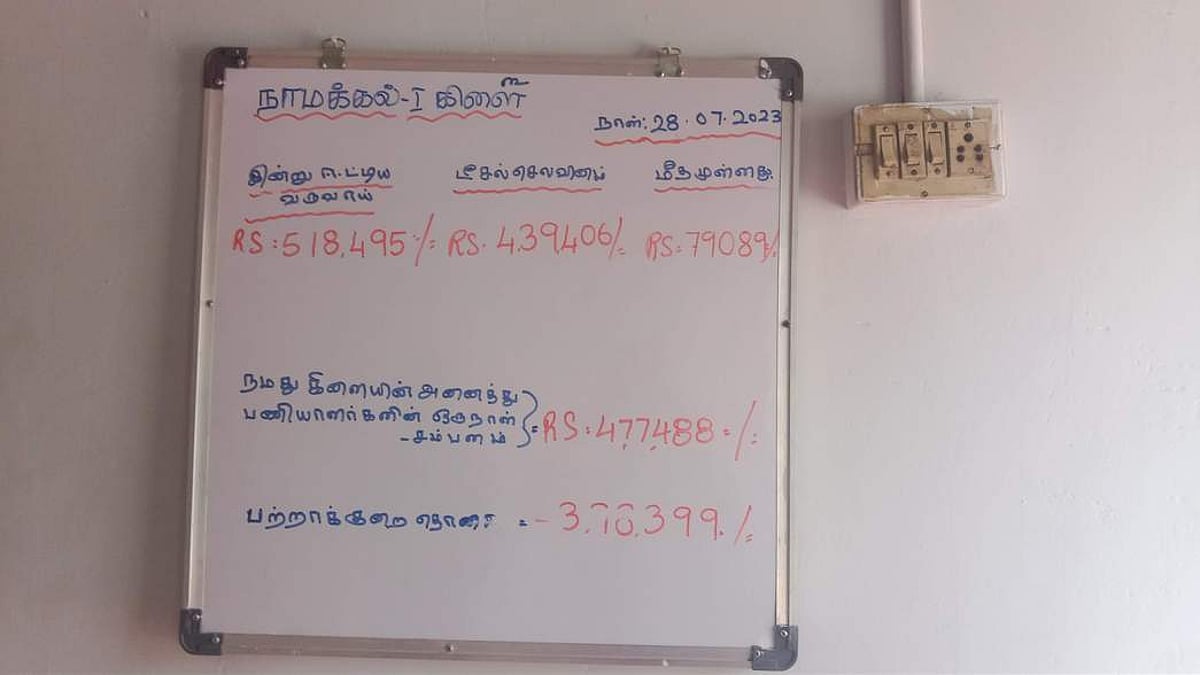 நாமக்கல்-I கிளை
நாள்: 28.07.2023
இன்று ஈட்டிய டீசல்செலவினம் மீதமுள்ளது.
வருவாய்
RS:518,495/= RS. 4,39,406/= RS:79089/=
நமது கிளையின் அனைத்து
பணியாளர்களின் ஒருநாள் = RS:4,77,488=/=
-சம்பளம்
பற்றாக்குறை தொகை = -3,98,399./=